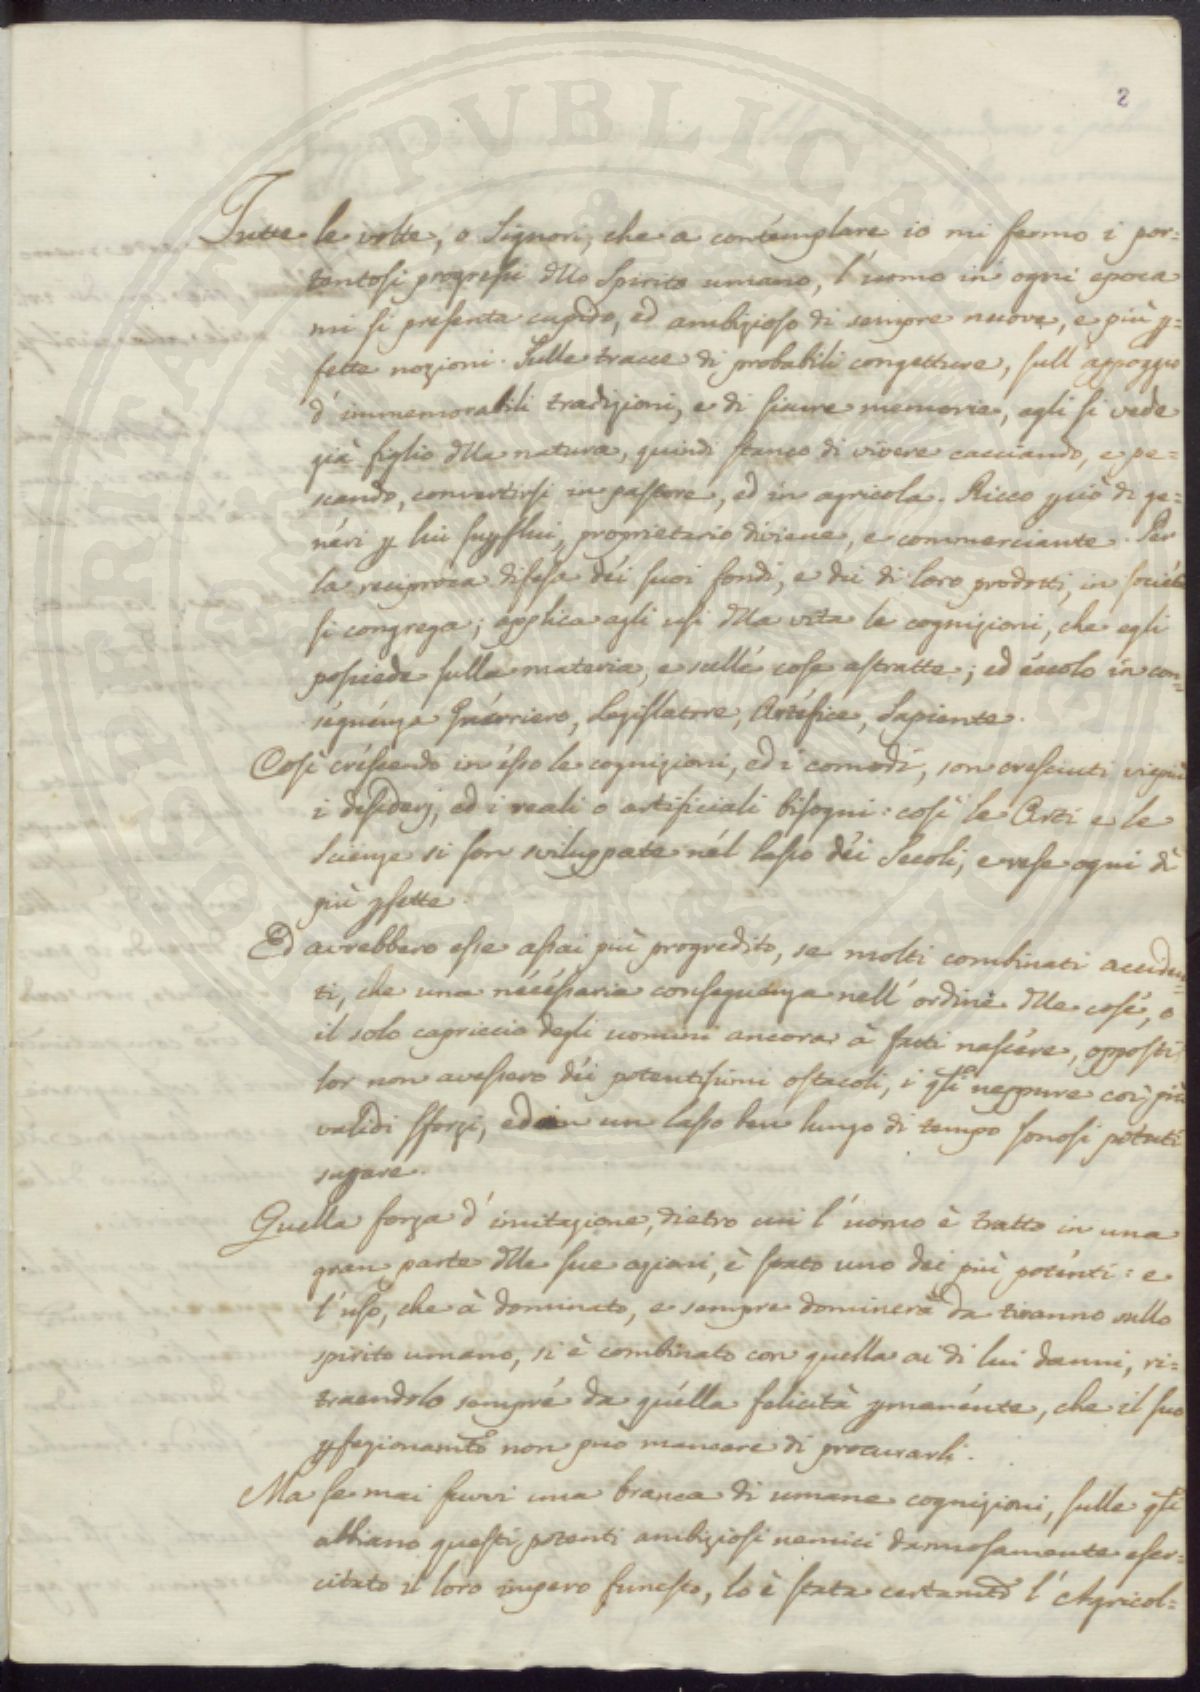 2
Tutte le volte, o Signori, che a contemplare io mi fermo i por=
tentosi progressi dllo Spirito umano, l'uomo in ogni epoca
mi si presenta cupido, ed ambizioso di sempre nuove, e più p=
fette nozioni. Sulle tracce di probabili congetture, sull'appoggio
d'immemorabili tradizioni, e di sicure memorie, egli si vede
già figlio dlla natura, quindi stanco di vivere cacciando, e pe=
scando, convertirsi in pastore, ed in agricola. Ricco pciò di ge=
neri p lui supflui, proprietario diviene, e commerciante. Per
la reciproca difesa dei suoi fondi, e dei di loro prodotti, in società
si congrega; applica agli usi dlla vita le cognizioni, che egli
possiede sulla materia, e sulle cose astratte; ed eccolo in con=
seguenza Guerriero, Legislatore, Artefice, Sapiente.
Così crescendo in esso le cognizioni, ed i comodi, son cresciuti viepiù
i desiderj, ed i reali o artificiali bisogni: così le Arti e le
Scienze si son sviluppate nel lasso dei Secoli, e rese ogni dì
più pfette.
Ed avrebbero esse assai più progredito, se molti combinati acciden=
ti, che una necessaria conseguenza nell'ordine dlle cose, o
il solo capriccio degli uomini ancora à fatti nascere, opposti
lor non avessero dei potentissimi ostacoli, i qli neppure coi più
validi sforzi, ed in un lasso ben lungo di tempo sonosi potuti
supare.
Quella forza d'imitazione, dietro cui l'uomo è tratto in una
gran parte dlle sue azioni, è stato uno dei più potenti: e
l'uso, che à dominato, e sempre dominerà da tiranno sullo
spirito umano, si è combinato con quella ai di lui danni, ri=
traendolo sempre da quella felicità pmanente, che il suo
pfezionamto non può mancare di procurarli.
Ma se mai fuvvi una branca di umane cognizioni, sulle qli
abbiano questi potenti ambiziosi nemici dannosamente eser=
citato il loro impero funesto, lo è stata certamte l'Agricol=
PUBLICA